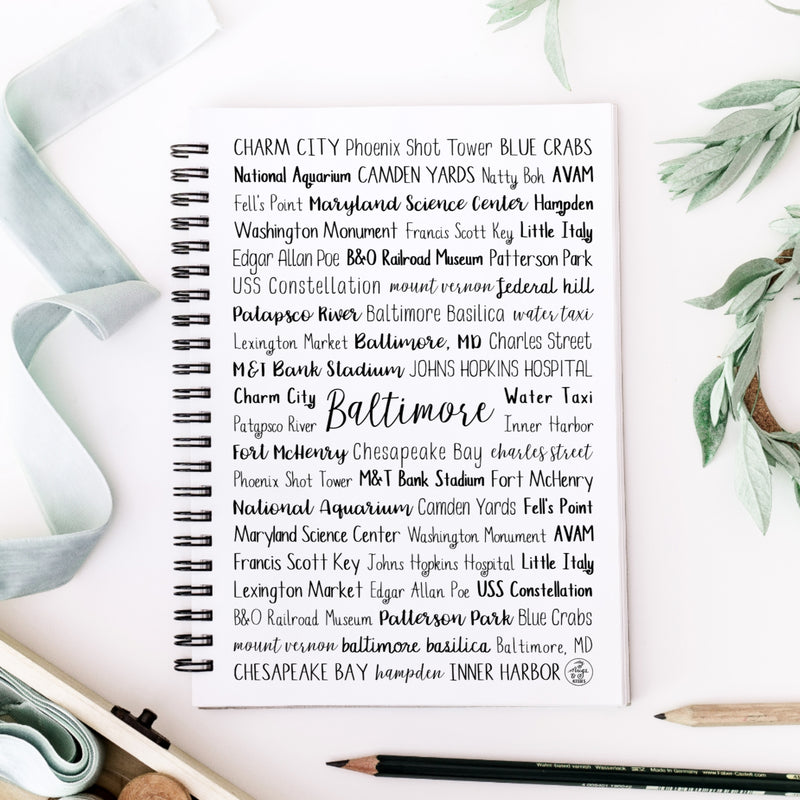 CHARM CITY Phoenix Shot Tower BLUE CRABS
National Aquarium CAMDEN YARDS Natty Boh AVAM
Fell's Point Maryland Science Center Hampden
Washington Monument Francis Scott Key Little Italy
Edgar Allan Poe B&O Railroad Museum Patterson Park
USS Constellation mount vernon federal hill
Patapsco River Baltimore Basilica water taxi
Lexington Market Baltimore, MD Charles Street
M&T Bank Stadium JOHNS HOPKINS HOSPITAL
Charm City Baltimore Water Taxi
Patapsco River Inner Harbor
Fort McHenry Chesapeake Bay charles street
Phoenix Shot Tower M&T Bank Stadium Fort McHenry
National Aquarium Camden Yards Fell's Point
Maryland Science Center Washington Monument AVAM
Francis Scott Key Johns Hopkins Hospital Little Italy
Lexington Market Edgar Allan Poe USS Constellation
B&O Railroad Museum Patterson Park Blue Crabs
mount vernon baltimore basilica Baltimore, MD
CHESAPEAKE BAY hampden INNER HARBOR
Made in Germany www.Faber-Castell.com